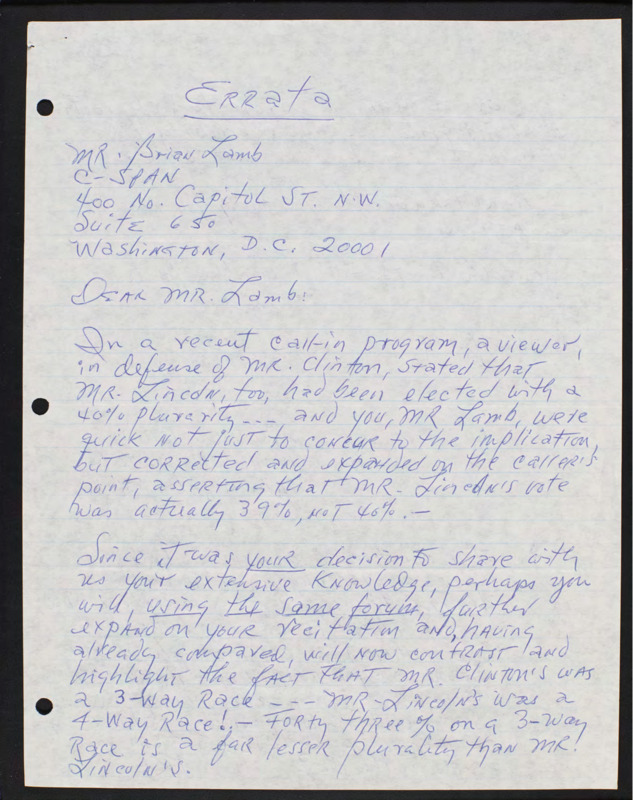 Errata
Mr. Brian Lamb
C-SPAN
400 No. Capitol St. N.W.
Suite 650
Washington, D.C. 20001
Dear Mr. Lamb:
In a recent call-in program, a viewer,
in defense of Mr. Clinton, stated that
Mr. Lincoln, too, had been elected with a
40% plurarity --- and you, Mr Lamb, were
quick not just to concur to the implication,
but corrected and expanded on the caller's
point, asserting that Mr. Lincoln's vote
was actually 39%, not 40%. —
Since it was your decision to share with
us your extensive knowledge, perhaps you
will, using the same forum, further
expand on your recitation and, having
already compared, will now contrast and
highlight the fact that Mr. Clinton's was
a 3-Way Race --- Mr. Lincoln's was a
4-Way Race!. — Forty three % on a 3-way
Race is a far lesser plurality than Mr.
Lincoln's.